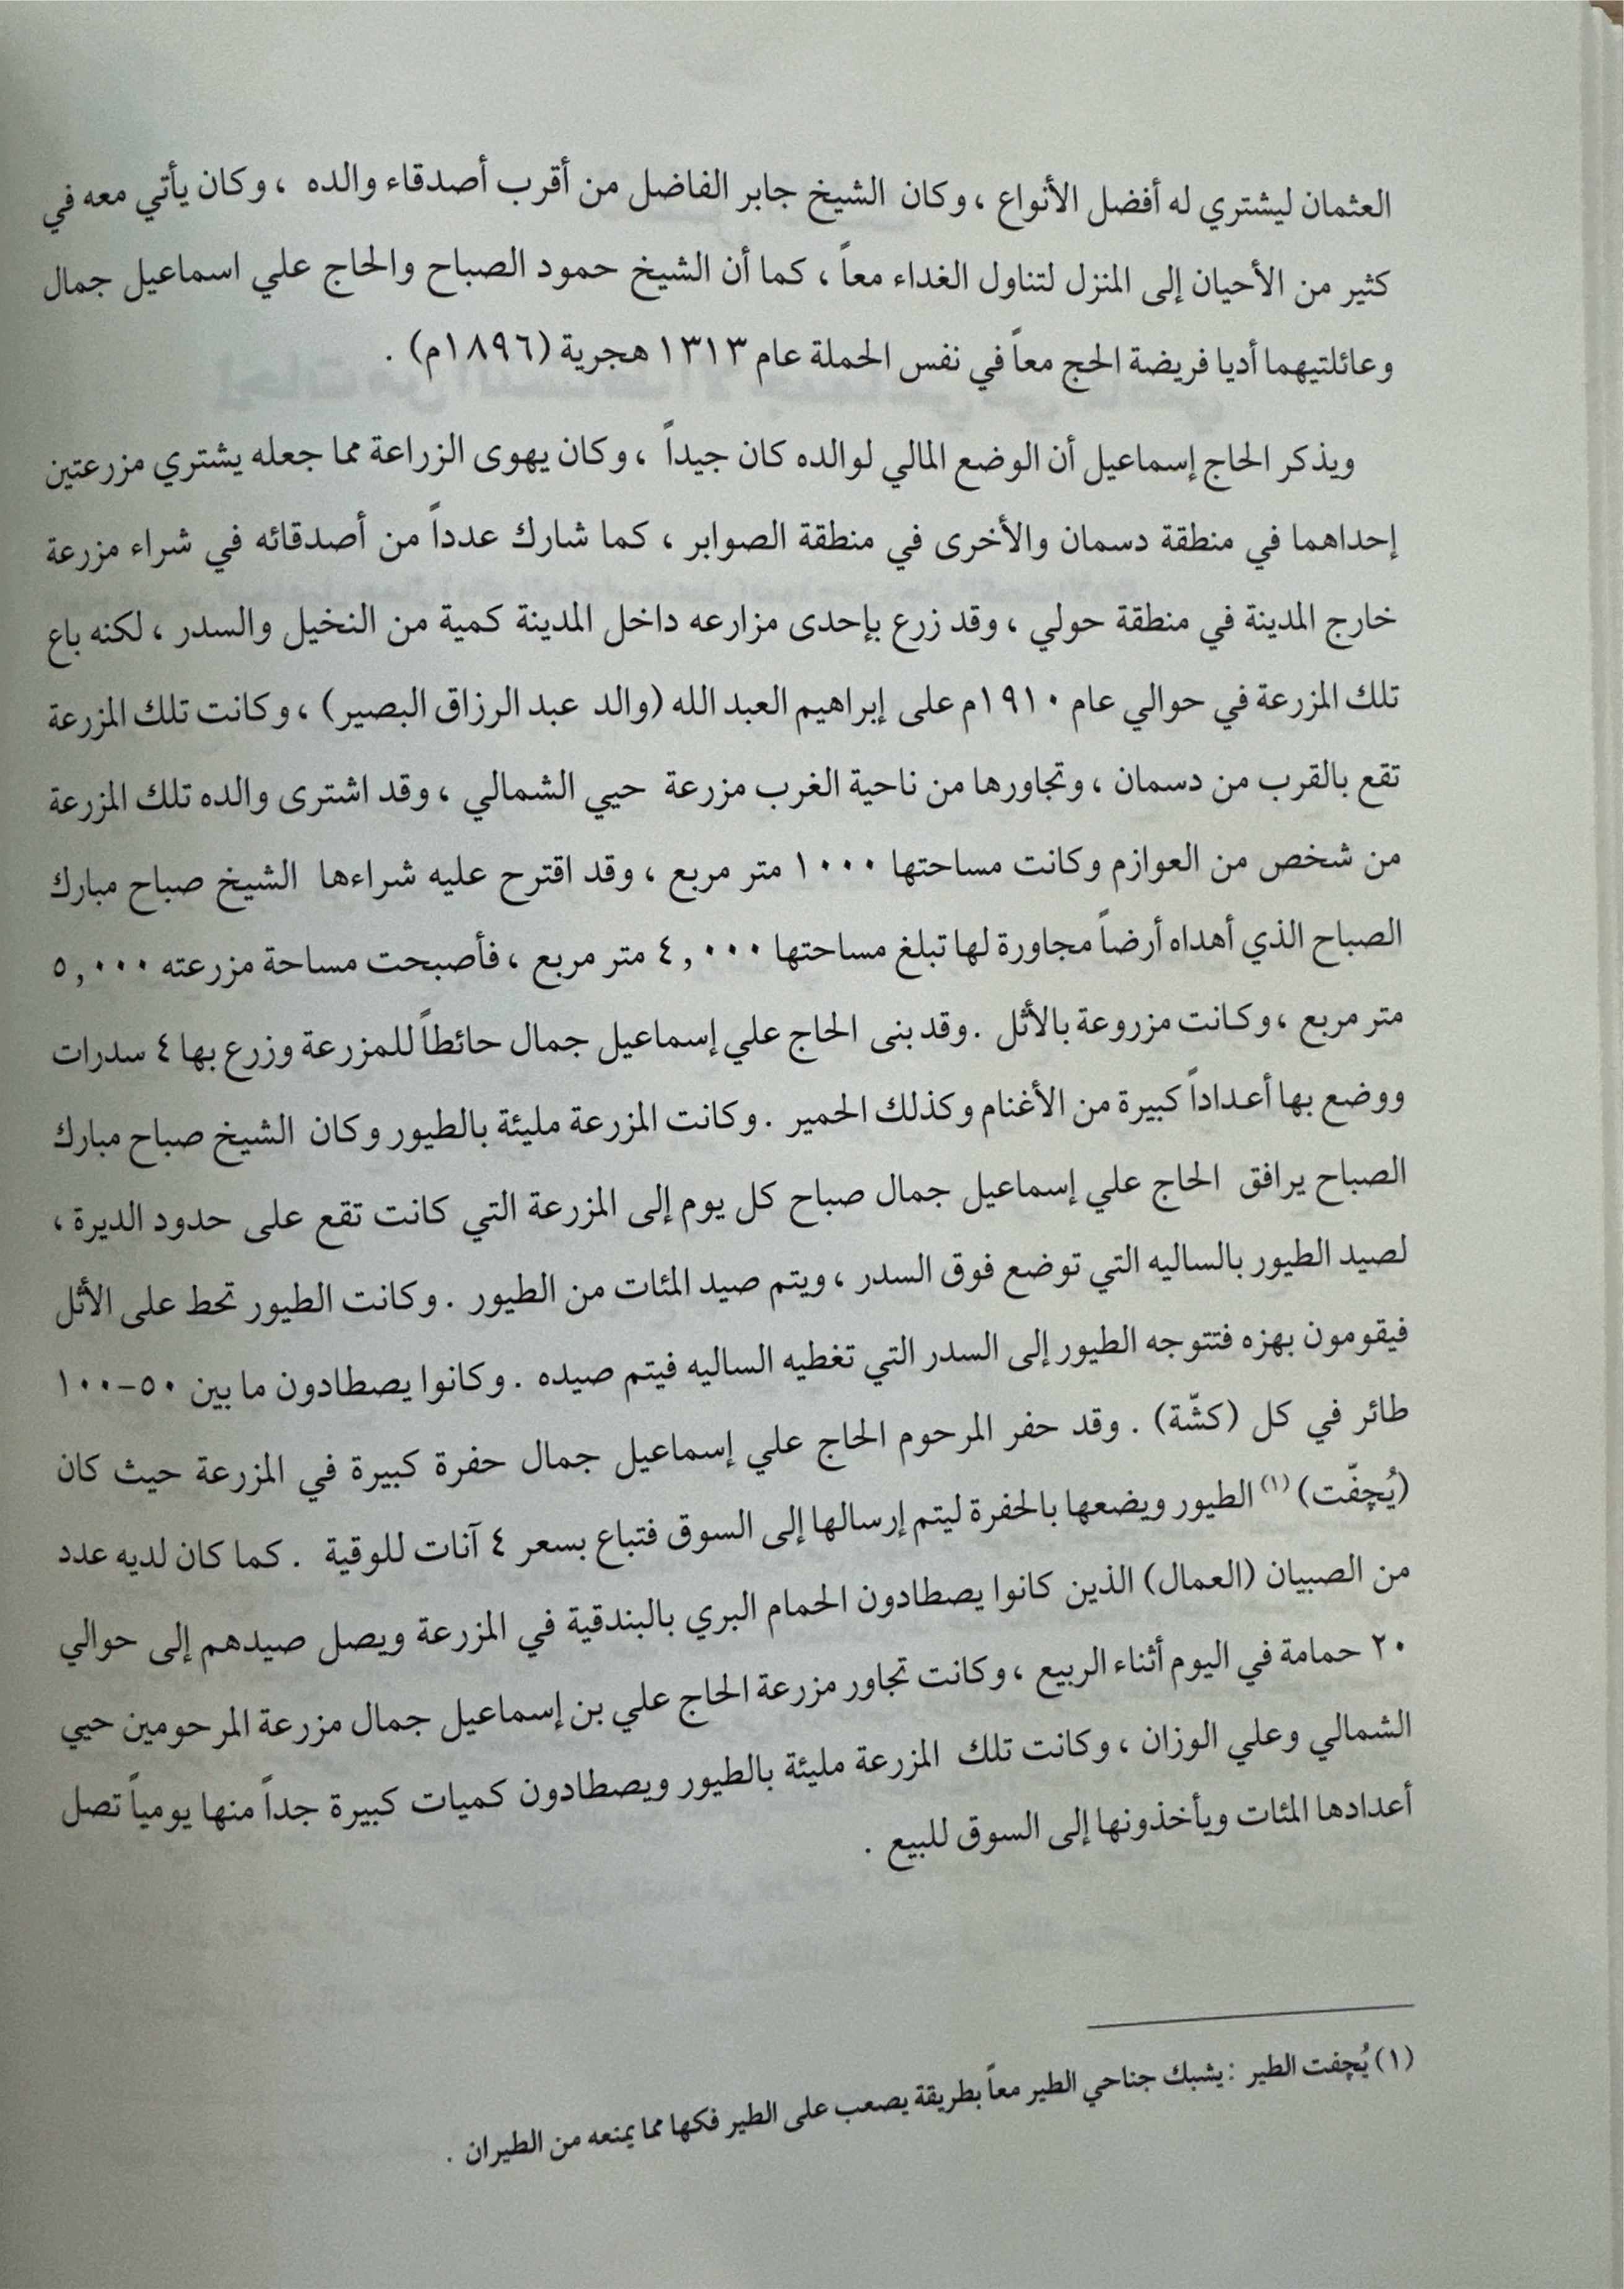 العثمان ليشتري له أفضل الأنواع ، وكان الشيخ جابر الفاضل من أقرب أصدقاء والده ، وكان يأتي معه في
كثير من الأحيان إلى المنزل لتناول الغداء معاً ، كما أن الشيخ حمود الصباح والحاج علي اسماعيل جمال
وعائلتيهما أديا فريضة الحج معاً في نفس الحملة عام ١٣١٣ هجرية (١٨٩٦م) .
ويذكر الحاج إسماعيل أن الوضع المالي لوالده كان جيداً ، وكان يهوى الزراعة مما جعله يشتري مزرعتين
إحداهما في منطقة دسمان والأخرى في منطقة الصوابر ، كما شارك عدداً من أصدقائه في شراء مزرعة
خارج المدينة في منطقة حولي ، وقد زرع بإحدى مزارعه داخل المدينة كمية من النخيل والسدر ، لكنه باع
تلك المزرعة في حوالي عام ١٩١٠م على إبراهيم العبد الله (والد عبد الرزاق البصير) ، وكانت تلك المزرعة
تقع بالقرب من دسمان ، وتجاورها من ناحية الغرب مزرعة حيي الشمالي ، وقد اشترى والده تلك المزرعة
من شخص من العوازم وكانت مساحتها ١٠٠٠ متر مربع ، وقد اقترح عليه شراءها الشيخ صباح مبارك
الصباح الذي أهداه أرضاً مجاورة لها تبلغ مساحتها ٤,٠٠٠ متر مربع ، فأصبحت مساحة مزرعته ٥,٠٠٠
متر مربع ، وكانت مزروعة بالأثل . وقد بنى الحاج علي إسماعيل جمال حائطاً للمزرعة وزرع بها ٤ سدرات
ووضع بها أعداداً كبيرة من الأغنام وكذلك الحمير . وكانت المزرعة مليئة بالطيور وكان الشيخ صباح مبارك
الصباح يرافق الحاج علي إسماعيل جمال صباح كل يوم إلى المزرعة التي كانت تقع على حدود الديرة ،
لصيد الطيور بالساليه التي توضع فوق السدر ، ويتم صيد المئات من الطيور . وكانت الطيور تحط على الأثل
فيقومون بهزه فتتوجه الطيور إلى السدر التي تغطيه الساليه فيتم صيده . وكانوا يصطادون ما بين ٥٠-١٠٠
طائر في كل (كشّة) . وقد حفر المرحوم الحاج علي إسماعيل جمال حفرة كبيرة في المزرعة حيث كان
(يُچفّت) (١) الطيور ويضعها بالحفرة ليتم إرسالها إلى السوق فتباع بسعر ٤ آنات للوقية . كما كان لديه عدد
من الصبيان (العمال) الذين كانوا يصطادون الحمام البري بالبندقية في المزرعة ويصل صيدهم إلى حوالي
٢٠ حمامة في اليوم أثناء الربيع ، وكانت تجاور مزرعة الحاج علي بن إسماعيل جمال مزرعة المرحومين حيي
الشمالي وعلي الوزان ، وكانت تلك المزرعة مليئة بالطيور ويصطادون كميات كبيرة جداً منها يومياً تصل
أعدادها المئات ويأخذونها إلى السوق للبيع .
(١) يُچفت الطير : يشبك جناحي الطير معاً بطريقة يصعب على الطير فكها مما يمنعه من الطيران .